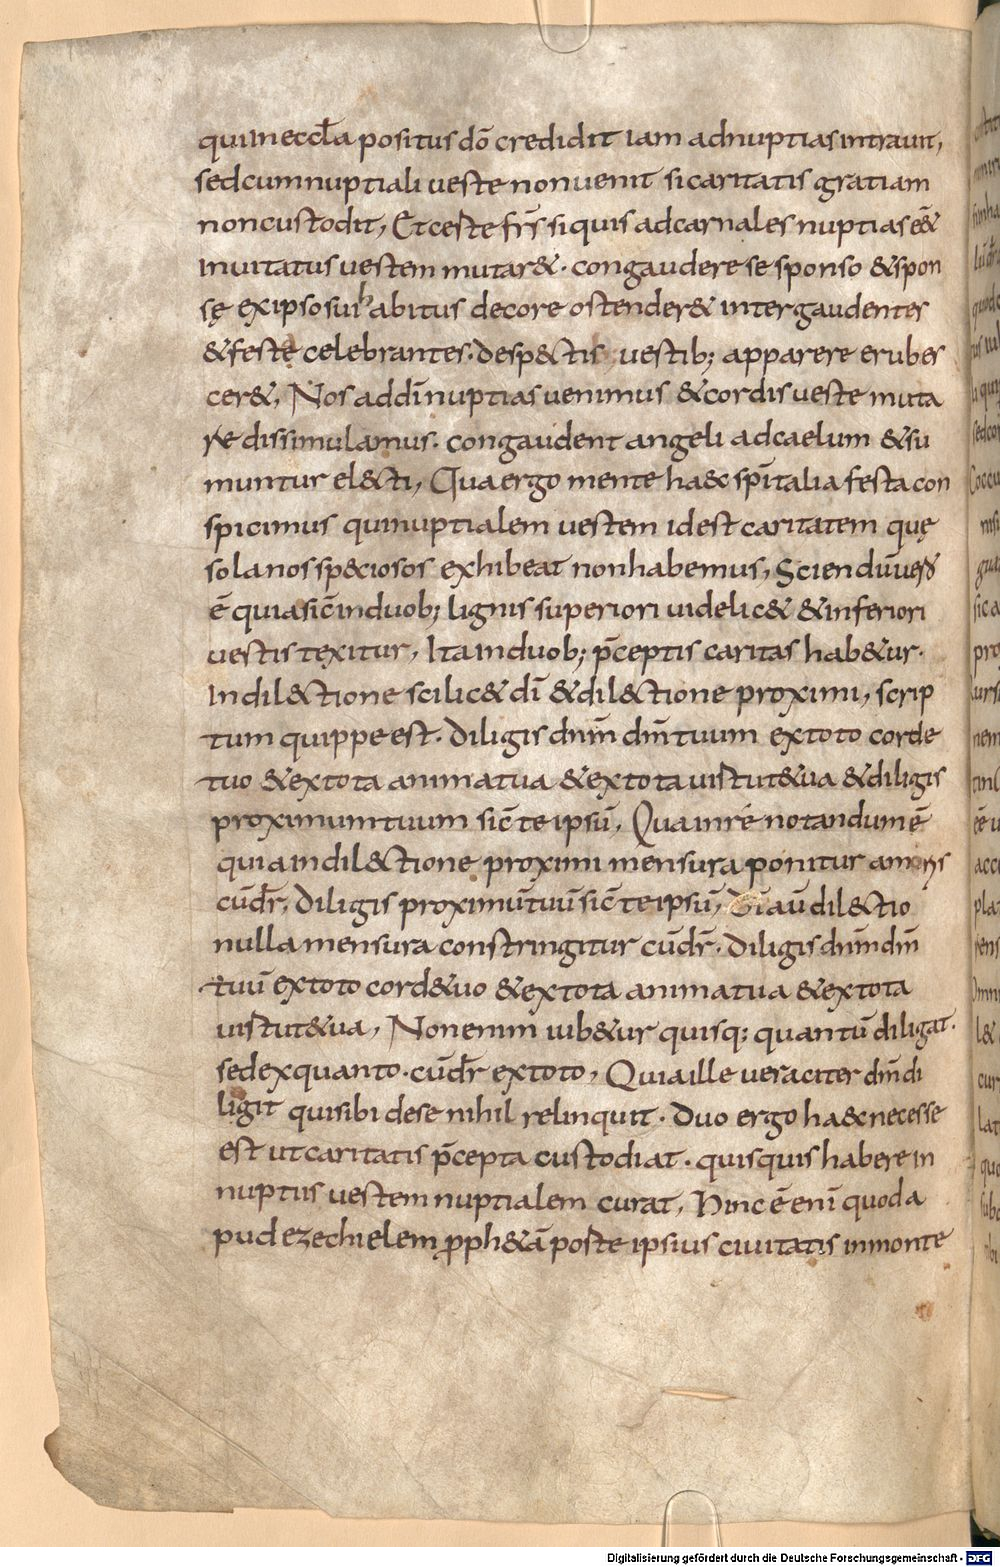 qui in eccl̄a positus dō credidit iam ad nuptias intrauit,
sed cum nuptiali ueste non uenit si caritatis gratiam
non custodit, Et ceste fr̄s si quis ad carnales nuptias eē&
inuitatus uestem mutar&. congaudere se sponso & spon
sę ex ipso sui habitus decore ostender& inter gaudentes
& feste celebrantes. desp&tis uestib; apparere erubes
cer&, Nos ad dī nuptias uenimus & cordis ueste muta
re dissimulamus. congaudent angeli ad caelum &su
muntur el&ti, Qua ergo mente ha&c sp̄italia festa con
spicimus qui nuptialem uestem id est caritatem quę
sola nos sp&ciosos exhibeat non habemus, Sciendū uero
ē quia sic̄ in duob; lignis superiori uidelic& & inferiori
uestis texitur, Ita in duob; p̄ceptis caritas hab&ur.
In dil&tione scilic& dī & dil&tione proximi, scrip
tum quippe est. Diligis dn̄m dm̄ tuum ex toto corde
tuo & ex tota anima tua & ex tota uirtut&ua & diligis
proximum tuum sic̄ te ipsū, Qua in re notandum ē
quia in dil&tione proximi mensura ponitur amoris
cū dr̄, Diligis proximū tuū sic̄ te ipsū, Dī aū dil&tio
nulla mensura constringitur cū dr̄. Diligis dn̄m dm̄
tuū ex toto cord&uo & ex tota anima tua & ex tota
uirtut&ua, Non enim iub&ur quisq; quantū diligat.
sed ex quanto. cū dr̄ ex toto, Quia ille ueraciter dm̄ di
ligit qui sibi de se nihil relinquit. Duo ergo ha&c necesse
est ut caritatis p̄cepta custodiat. quisquis habere in
nuptiis uestem nuptialem curat, Hinc ē enī quod a
pud ezechielem p̱ph&ā poste ipsius ciuitatis in monte
Digitalisierung gefördert durch die Deutsche Forschungsgemeinschaft - DFG